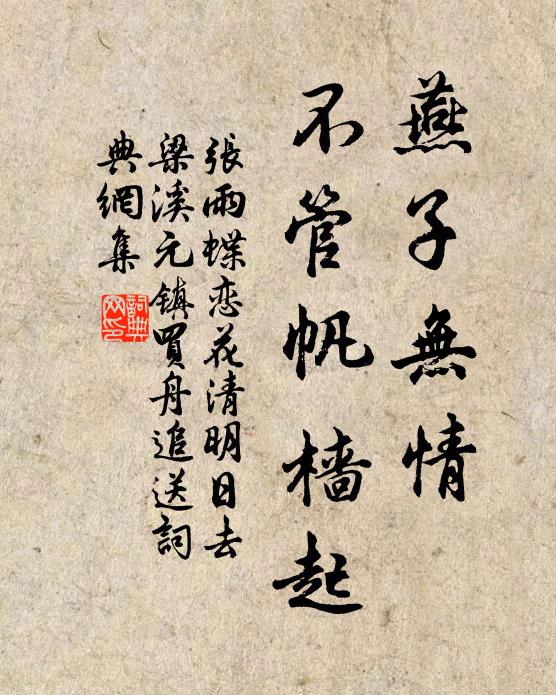 燕子無情
不管帆檣起
張雨蝶恋花清明日去
梁溪元镇買舟追送詞
典網集
詞典
网印